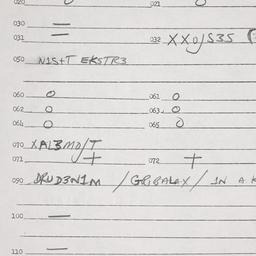 020 021
030 —
031 — 032 XX0/S35 (
050 N1S+T EKSTR3
060 0 061 0
062 0 063 0
064 0 065 0
070 XAL3M0/T
071 + 072 +
090 DRUD3N1M / GRIBALAX / 1N A K
100 —
110 —